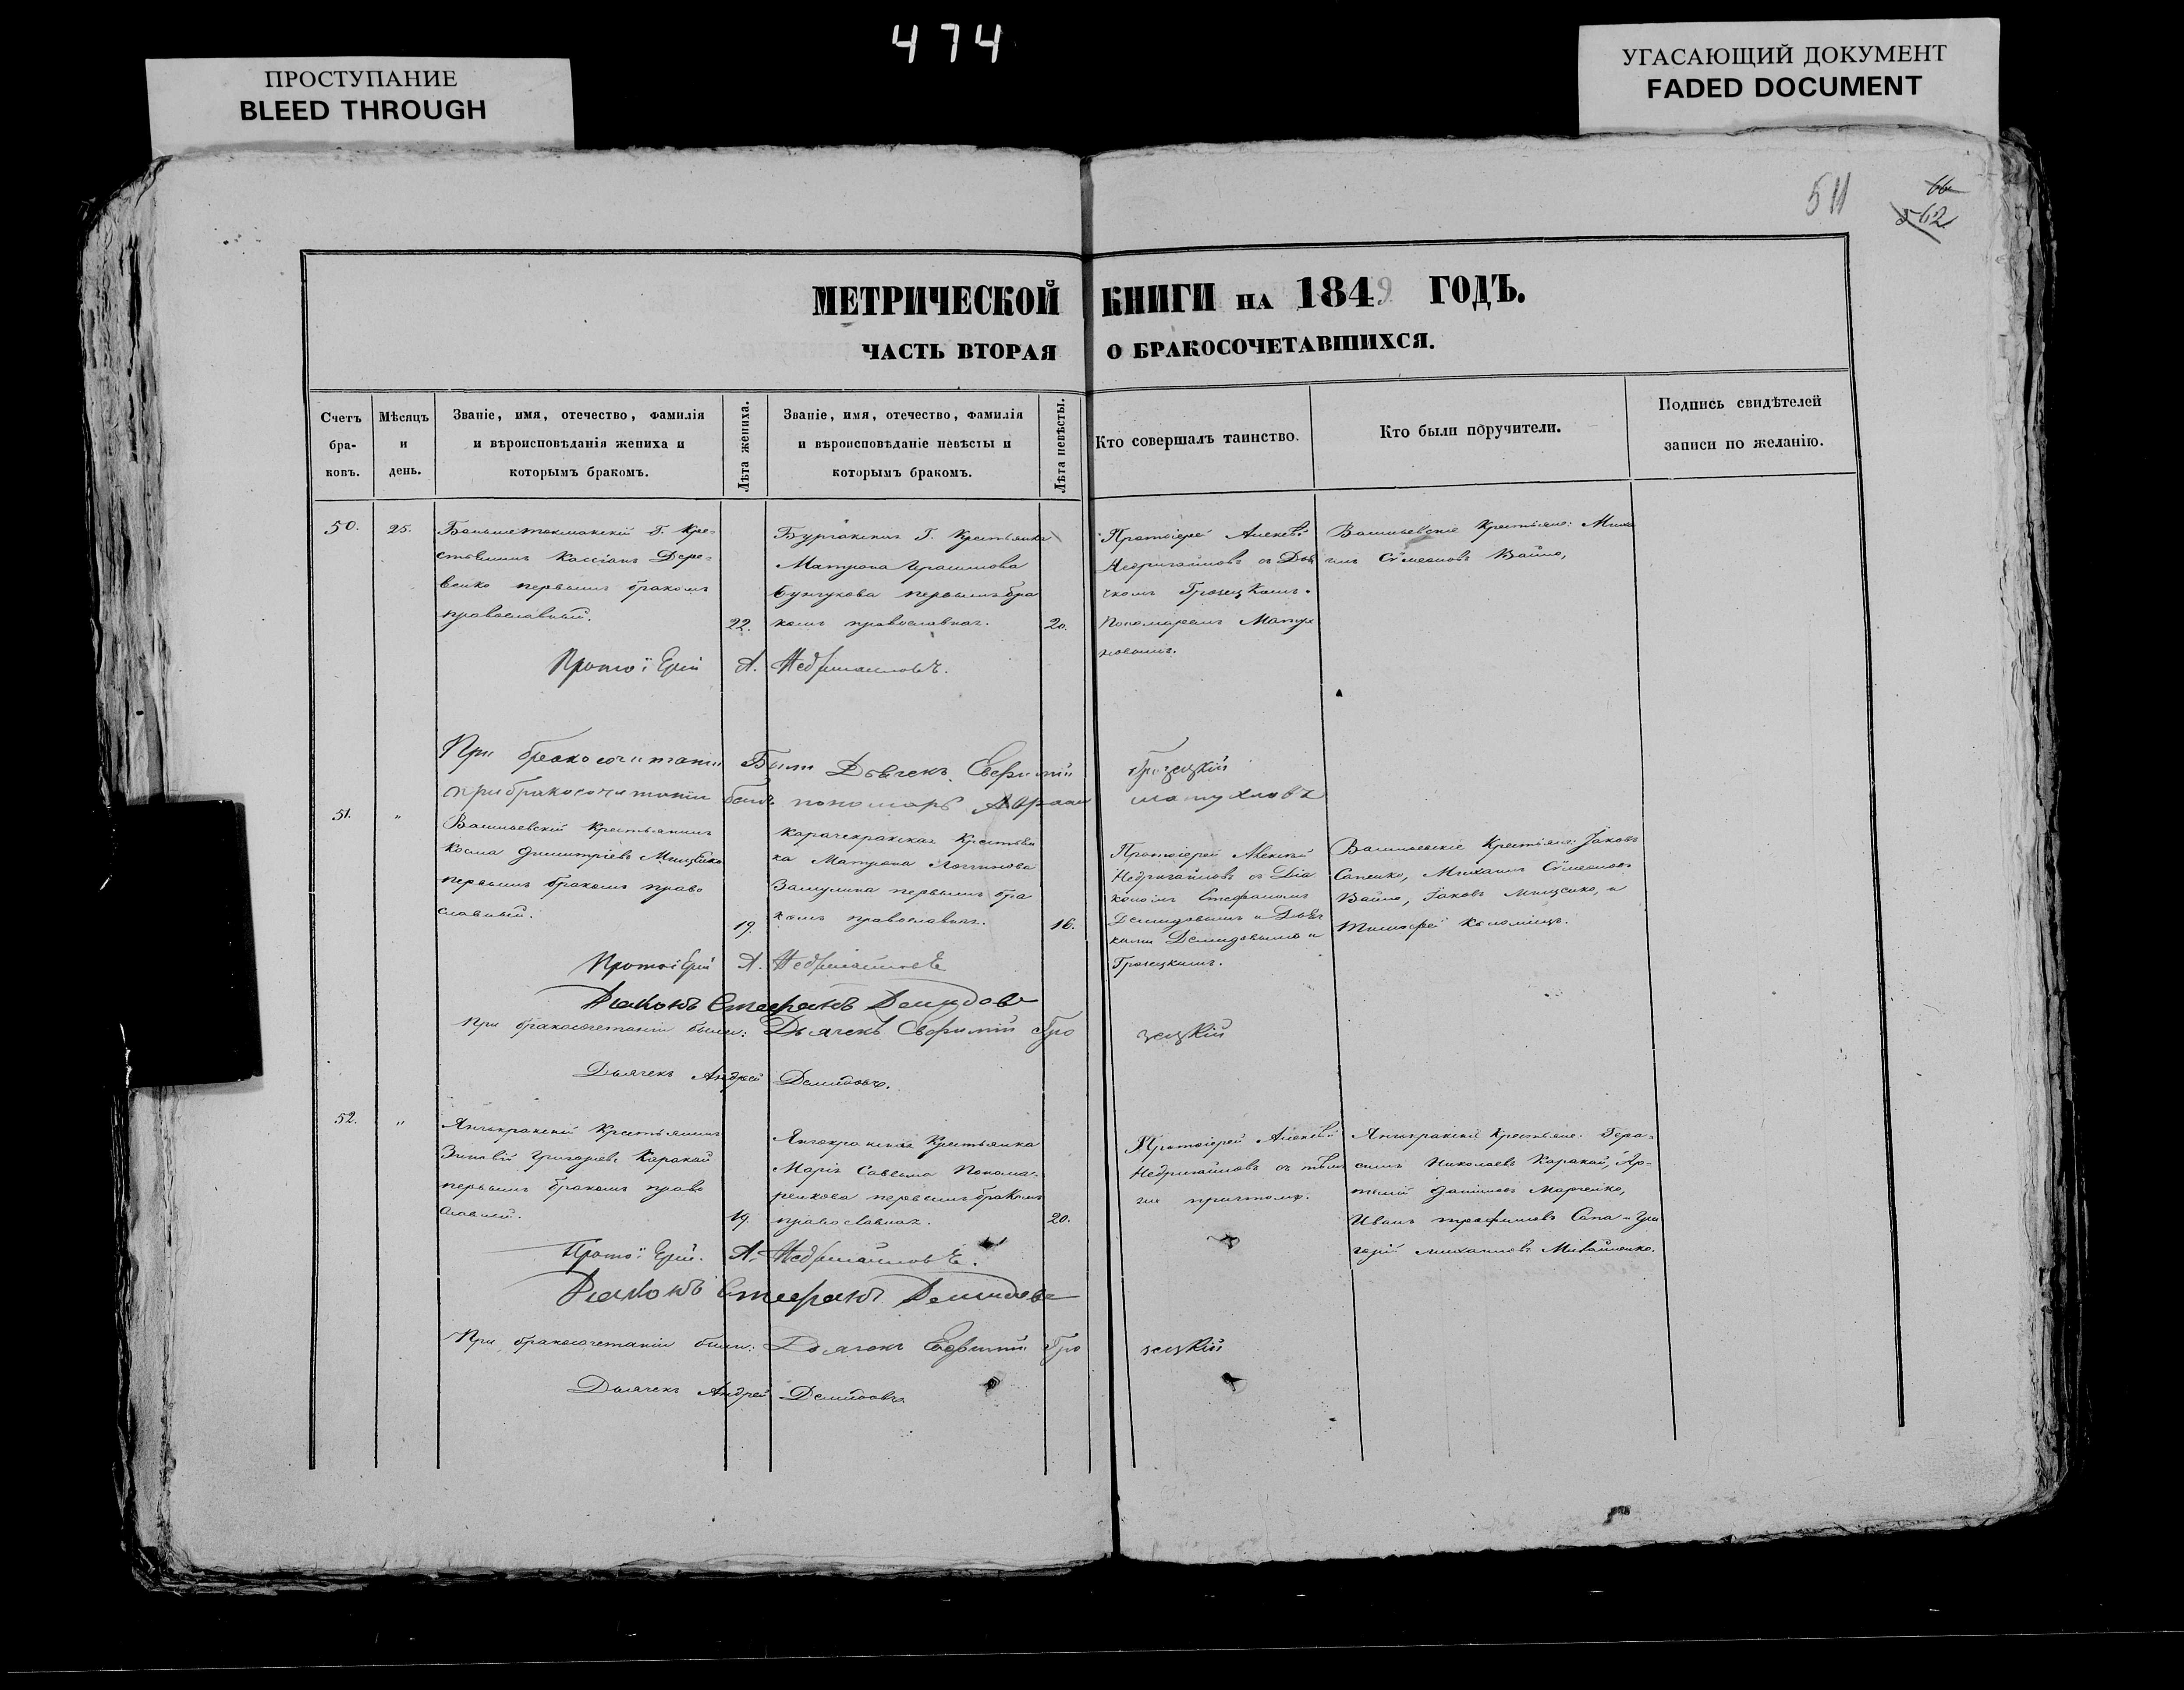 474
ПРОСТУПАНИЕ
BLEED THROUGH
УГАСАЮЩИЙ ДОКУМЕНТ
FADED DOCUMENT
511
66
562
МЕТРИЧЕСКОЙ КНИГИ НА 1849 ГОДЪ.
ЧАСТЬ ВТОРАЯ О БРАКОСОЧЕТАВШИХСЯ.
Счетъ бра-ковъ.
Мѣсяцъ и день.
Званіе, имя, отечество, фамилія
и вѣроисповѣданія жениха и
которымъ бракомъ.
Лѣта жениха.
Званіе, имя, отечество, фамилія
и вѣроисповѣданіе невѣсты и
которымъ бракомъ.
Лѣта невѣсты.
Кто совершалъ таинство.
Кто были поручители.
Подпись свидѣтелей
записи по желанію.
50.
25.
Большетокмакскій Г. Кре-
стьянинъ Кассіанъ Дере-
венко первымъ бракомъ
православный.
22.
Г. Крестьянка
Матрона
первымъ бра
комъ православная.
20.
Протоіерей Алексѣй
Недригайловъ съ Дья
чкомъ Грозецкимъ.
Пономаремъ Матух
новымъ.
Васильевскіе Крестьяне: Миха
илъ Сѵмеоновъ Вайло,
Протоіерей А. Недригайловъ.
При бракосочитаніи Были Дьячекъ Евфимій Грозецкій
при бракосочитаніи былъ пономарь
51.
"
Васильевскій Крестьянинъ
Косма Димитріевъ Мищенко
первымъ бракомъ право
славный.
19.
Карачекракская Крестьян
ка Матрона Логгинова
первымъ бра
комъ православная.
16.
Протоіерей Алексѣй
Недригайловъ съ Діа
кономъ Стефаномъ
Демидовымъ и Дьяч
ками Демидовымъ и
Грозецкимъ.
Васильевскіе Крестьяне: Іаковъ
Сапенко, Михаилъ Сѵмеоновъ
Вайло, Іаковъ Мищенко, и
Тимофей Коломіецъ.
Протоіерей А. Недригайловъ
Діаконъ Стефанъ Демидовъ
При бракосочетаніи были: Дьячекъ Евфимій Грозецкій
Дьячекъ Андрей Демидовъ.
52.
"
Янчекракскій Крестьянинъ
Зиновій Григорьевъ Каракай
первымъ бракомъ право
славный.
19.
Янчекракская Крестьянка
Марія Саввина Понома-
ренкова первымъ бракомъ
православная.
20.
Протоіерей Алексѣй
Недригайловъ съ тѣмъ
же причтомъ.
Янчекракскіе Крестьяне: Гера-
симъ Николаевъ Каракай, Ар-
темій Даниловъ Марченко,
Иванъ Трофимовъ Сапа и Гри
горій Михаиловъ
Протоіерей. А. Недригайловъ.
Діаконъ Стефанъ Демидовъ
При бракосочетаніи были: Дьячокъ Евфимій Грозецкій
Дьячекъ Андрей Демидовъ